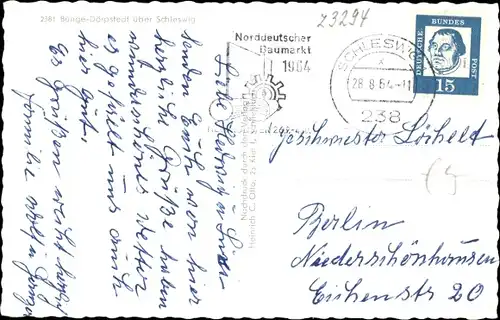 2381 Bünge-Dörpstedt über Schleswig
23294
Norddeutscher
Baumarkt
1964
SCHLESWIG
28.8.64-11
238
DEUTSCHE BUNDES POST
15
Nachdruck durch den Verlag
Heinrich C. Otto, 23 Kiel 1,
Liebe Hedwig u.
senden Euch von hier
herzliche Grüße haben
wunderschönes Wetter
es gefällt uns auch
hier gut.
Es Grüßen recht herzl
Familie
Berlin
Niederschönhausen
Eichenstr 20